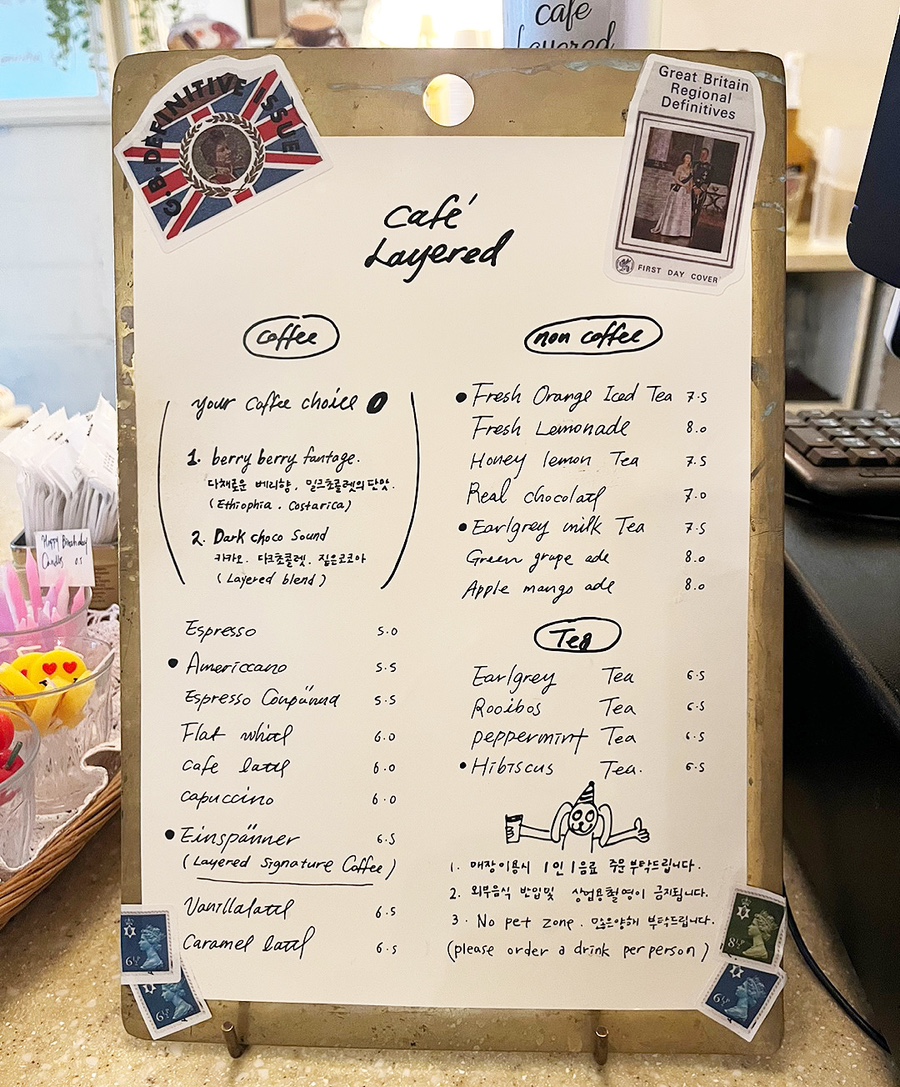 cafe
Layered
G.B. DEFINITIVE ISSUE
Great Britain
Regional
Definitives
FIRST DAY COVER
Café
Layered
Coffee
your Coffee choice
1. berry berry fantage.
다채로운 베리향, 밀크초콜렛의 단맛.
(Ethiophia . Costarica)
2. Dark choco Sound
카카오. 다크초콜렛. 짙은코코아
(Layered blend)
Espresso 5.0
• Americcano 5.5
Espresso Coupänna 5.5
Flat whitl 6.0
cafe lattl 6.0
capuccino 6.0
• Einspänner 6.5
(Layered Signature Coffee)
Vanillalattl 6.5
Caramel lattl 6.5
non coffee
• Fresh Orange Iced Tea 7.5
Fresh Lemonade 8.0
Honey lemon Tea 7.5
Real chocolatl 7.0
• Earlgrey milk Tea 7.5
Green grape ade 8.0
Apple mango ade 8.0
Tea
Earlgrey Tea 6.5
Rooibos Tea 6.5
peppermint Tea 6.5
• Hibiscus Tea. 6.5
1. 매장이용시 1인 1음료 주문부탁드립니다.
2. 외부음식 반입및 상업용촬영이 금지됩니다.
3. No pet zone. 많은양해 부탁드립니다.
(please order a drink per person)
Happy Birthday
Candles 0.5
6½
6½
8½
6½